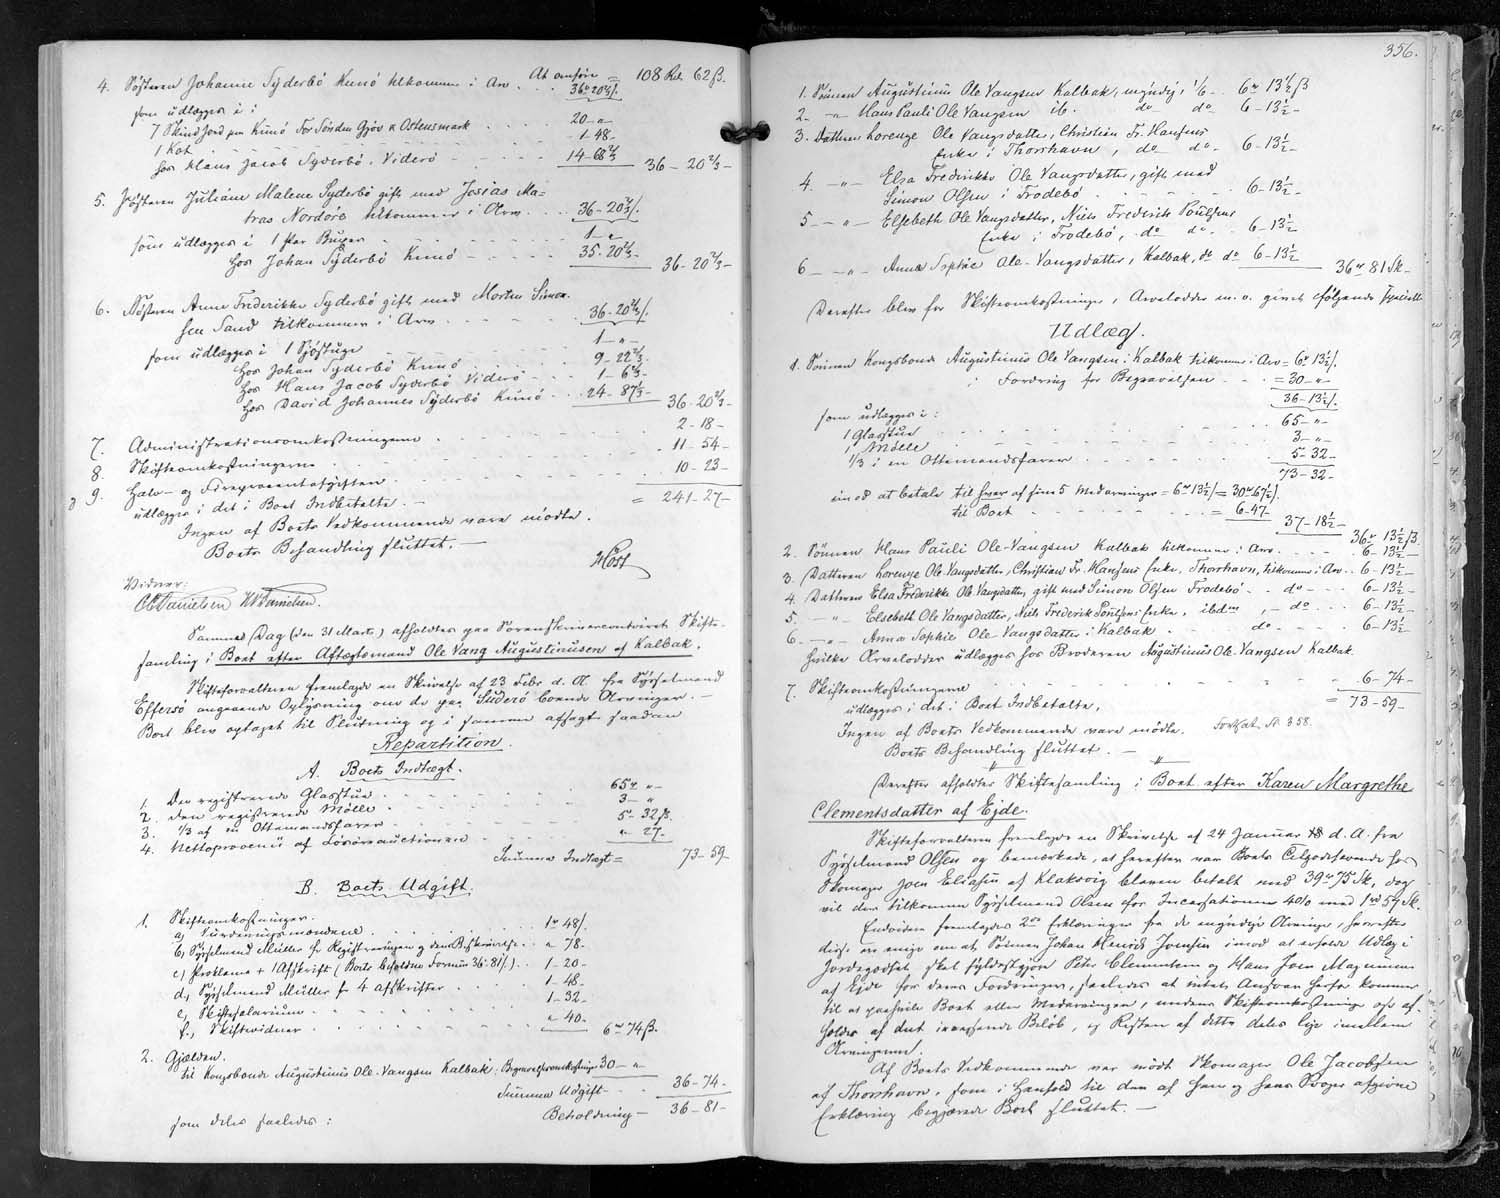 At anføre = 108 Rd. 62 ß.
4. Søsteren Johanne Syderbö Kunö tilkommer i Arv . . 36-20⅔/.
som udlægges i :
7 Skind Jord paa Kunö For Sörden Gjöv & Ostensmark . . . . 20-"-
1 Kat . . . . 1-48-
hos Hans Jacob Syderbö, Viderö - - - - 14-68⅔ 36-20⅔-
5. Søsteren Juliane Malene Syderbö gift med Josias Ma=
tras Nordöre tilkommer i Arv . . . 36-20⅔/.
som udlægges i 1 Par Buxer . . . . 1-"-
hos Johan Syderbö Kunö - - - - 35-20⅔- 36-20⅔-
6. Søsteren Anne Frederikke Syderbö gift med Morten Simon-
sen Sand tilkommer i Arv . . . . 36-20⅔/.
som udlægges i 1 Sjöstuge . . . . 1-"-
hos Johan Syderbö Kunö . . . . 9-22⅔-
hos Hans Jacob Syderbö Viderö . . . . 1-6⅔-
hos David Johannes Syderbö Kunö . . . 24-87⅓- 36-20⅔-
7. Administrationsomkostningerne . . . . 2-18-
8. Skifteomkostningerne . . . . 11-54-
9. Halv- og Fireprocentafgiften . . . . 10-23-
udlægges i det i Boet Indbetalte. = 241-27-
Ingen af Boets Vedkommende vare mödte.
Boets Behandling sluttet. —
Höst
Vidner:
O. Danielsen H. Danielsen.
Samme Dag (den 31 Marts) afholdtes paa Sorenskrivercontoiret Skifte-
samling i Boet efter Aftægtsmand Ole Vang Augustinusen af Kalbak.
Skifteforvalteren fremlagde en Skrivelse af 23 Febr d. A. fra Sysselmand
Effersö angaaende Oplysning om de paa Suderö boende Arvinger. —
Boet blev optaget til Slutning og i samme afsagt saadan
Repartition.
A. Boets Indtægt.
1. Den registrerede Glasstue . . . . 65 rd "-
2. Den registrerede Mölle . . . . 3- "
3. ⅓ af en Ottemandsfarer . . . . 5-32 ß.
4. Nettoprovenü af Lösöreauctionen . . . . " 27-
Summa Indtægt = 73-59-
B. Boets Udgift.
1. Skifteomkostninger.
a, Vurderingsmændene . . . . 1 rd 48/.
b, Sysselmand Müller for Registreringen og dens Beskrivelse . . " 78.
c, Proklama + 1 Afskrift (Boets beholdne Formue 36-81/.) . . 1-20-
d, Sysselmand Müller for 4 Afskrifter . . . . 1-48-
e, Skiftesalarium . . . . 1-32-
f., Skiftevidner . . . . " 40- 6 rd 74 ß.
2. Gjælden.
til Kongsbonde Augustinus Ole-Vangsen Kalbak: Begravelsesomkostninger 30- "-
Summa Udgift - - 36-74-
Beholdning - 36-81-
som deles saaledes:
356.
1. Sönnen Augustinus Ole Vangsen Kalbak, myndig, 1/6 . . 6 rd 13½ ß
2. -"- Hans Pauli Ole Vangsen ib. do do 6-13½-
3. Datteren Lorenze Ole Vangsdatter, Christian Fr. Hansens
Enke i Thorshavn, do do- 6-13½-
4. -"- Elsa Fredrikke Ole Vangsdatter, gift med
Simon Olsen i Trodebö . . . . 6-13½-
5 -"- Elsebeth Ole Vangsdatter, Niels Frederik Poulsens
Enke i Trodebö, do do . . 6-13½-
6 -"- Anna Sophie Ole-Vangsdatter, Kalbak, do do 6-13½- 36 rd 81 Sk-
Derefter blev for Skifteomkostninger, Arvelodder m. v. givet fölgende specielt
Udlæg.
1. Sönnen Kongsbonde Augustinus Ole Vangsen i Kalbak tilkommer i Arv = 6 rd 13½/.
i Fordring for Begravelsen . . . = 30-"-
36-13½/.
som udlægges i :
1 Glasstue . . . . 65-"-
1 Mölle . . . . 3-"-
⅓ i en Ottemandsfarer . . . . 5-32-
73-32-
imod at betale til hver af sine 5 Medarvinger = 6 rd 13½/. = 30 rd 67½/.
til Boet . . . . = 6-47- 37-18½- 36 rd 13½ ß.
2. Sönnen Hans Pauli Ole-Vangsen Kalbak tilkommer i Arv . . . 6-13½-
3. Datteren Lorenze Ole Vangsdatter, Christian Fr. Hansens Enke, Thorshavn, tilkommer i Arv . . 6-13½-
4. Datteren Elsa Frederikke Ole Vangsdatter, gift med Simon Olsen Trodebö . . do - - - 6-13½-
5. -"- Elsebeth Ole Vangsdatter, Niels Frederik Poulsens Enke, ibdm, - do . . . 6-13½-
6. -"- Anna Sophie Ole-Vangsdatter i Kalbak . . . . do . . . . 6-13½-
hvilke Arvelodder udlægges hos Broderen Augustinus Ole-Vangsen Kalbak.
7. Skifteomkostningerne . . . . 6-74-
udlægges i det i Boet Indbetalte. = 73-59-
Ingen af Boets Vedkommende vare mödte. Fortsat S. 358.
Boets Behandling sluttet. —
Derefter afholdtes Skiftesamling i Boet efter Karen Margrethe
Clementsdatter af Ejde.
Skifteforvalteren fremlagde en Skrivelse af 24 Januar d. A. fra
Sysselmand Olsen og bemærkede, at herefter var Boets Tilgodehavende hos
Skomager Joen Eliasen af Klaksvig bleven betalt med 39 rd 75 Sk, dog
vil der tilkomme Sysselmand Olsen for Incassationen 4% med 1 rd 57 Sk.
Endvidere fremlagdes 2de Erklæringer fra de myndige Arvinger, hvorefter
disse ere enige om at Sönnen Johan Henrik Joensen imod at erholde Udlæg i
Jordegodset, skal fyldestgjöre Peter Clementsen og Hans Joen Magnussen
af Ejde for deres Fordringer, saaledes at intet Ansvar herfor kommer
til at paahvile Boet eller Medarvingen, medens Skifteomkostninger afhol-
holdes af det inkasserede Belöb, og Resten af dette deles lige imellem
Arvingerne.
Af Boets Vedkommende var mödt Skomager Ole Jacobsen
af Thorshavn, som i Henhold til den af ham og hans Svoger afgivne
Erklæring begjærede Boet sluttet. —